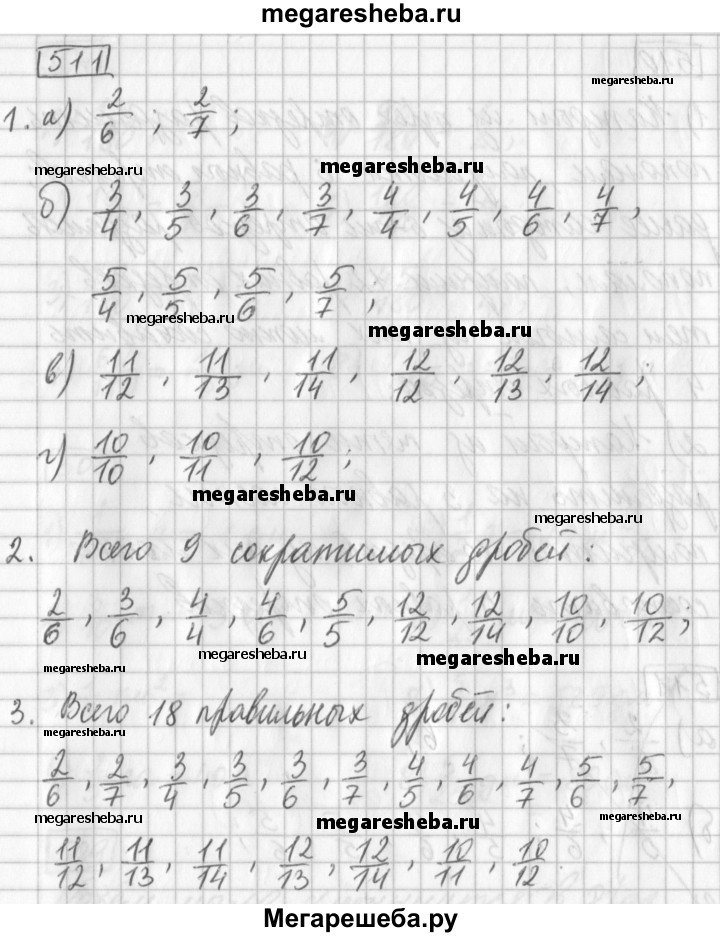 megaresheba.ru
511
megaresheba.ru
1. а) 2/6 ; 2/7 ;
megaresheba.ru megaresheba.ru
б) 3/4 , 3/5 , 3/6 , 3/7 , 4/4 , 4/5 , 4/6 , 4/7 ,
5/4 , 5/5 , 5/6 , 5/7 ;
megaresheba.ru megaresheba.ru
в) 11/12 , 11/13 , 11/14 , 12/12 , 12/13 , 12/14 ;
г) 10/10 , 10/11 , 10/12 ;
megaresheba.ru
megaresheba.ru
2. Всего 9 сократимых дробей :
2/6 , 3/6 , 4/4 , 4/6 , 5/5 , 12/12 , 12/14 , 10/10 , 10/12 ;
megaresheba.ru megaresheba.ru megaresheba.ru
3. Всего 18 правильных дробей :
megaresheba.ru
2/6 , 2/7 , 3/4 , 3/5 , 3/6 , 3/7 , 4/5 , 4/6 , 4/7 , 5/6 , 5/7 ,
megaresheba.ru megaresheba.ru megaresheba.ru
11/12 , 11/13 , 11/14 , 12/13 , 12/14 , 10/11 , 10/12 .
Мегарешеба.ру